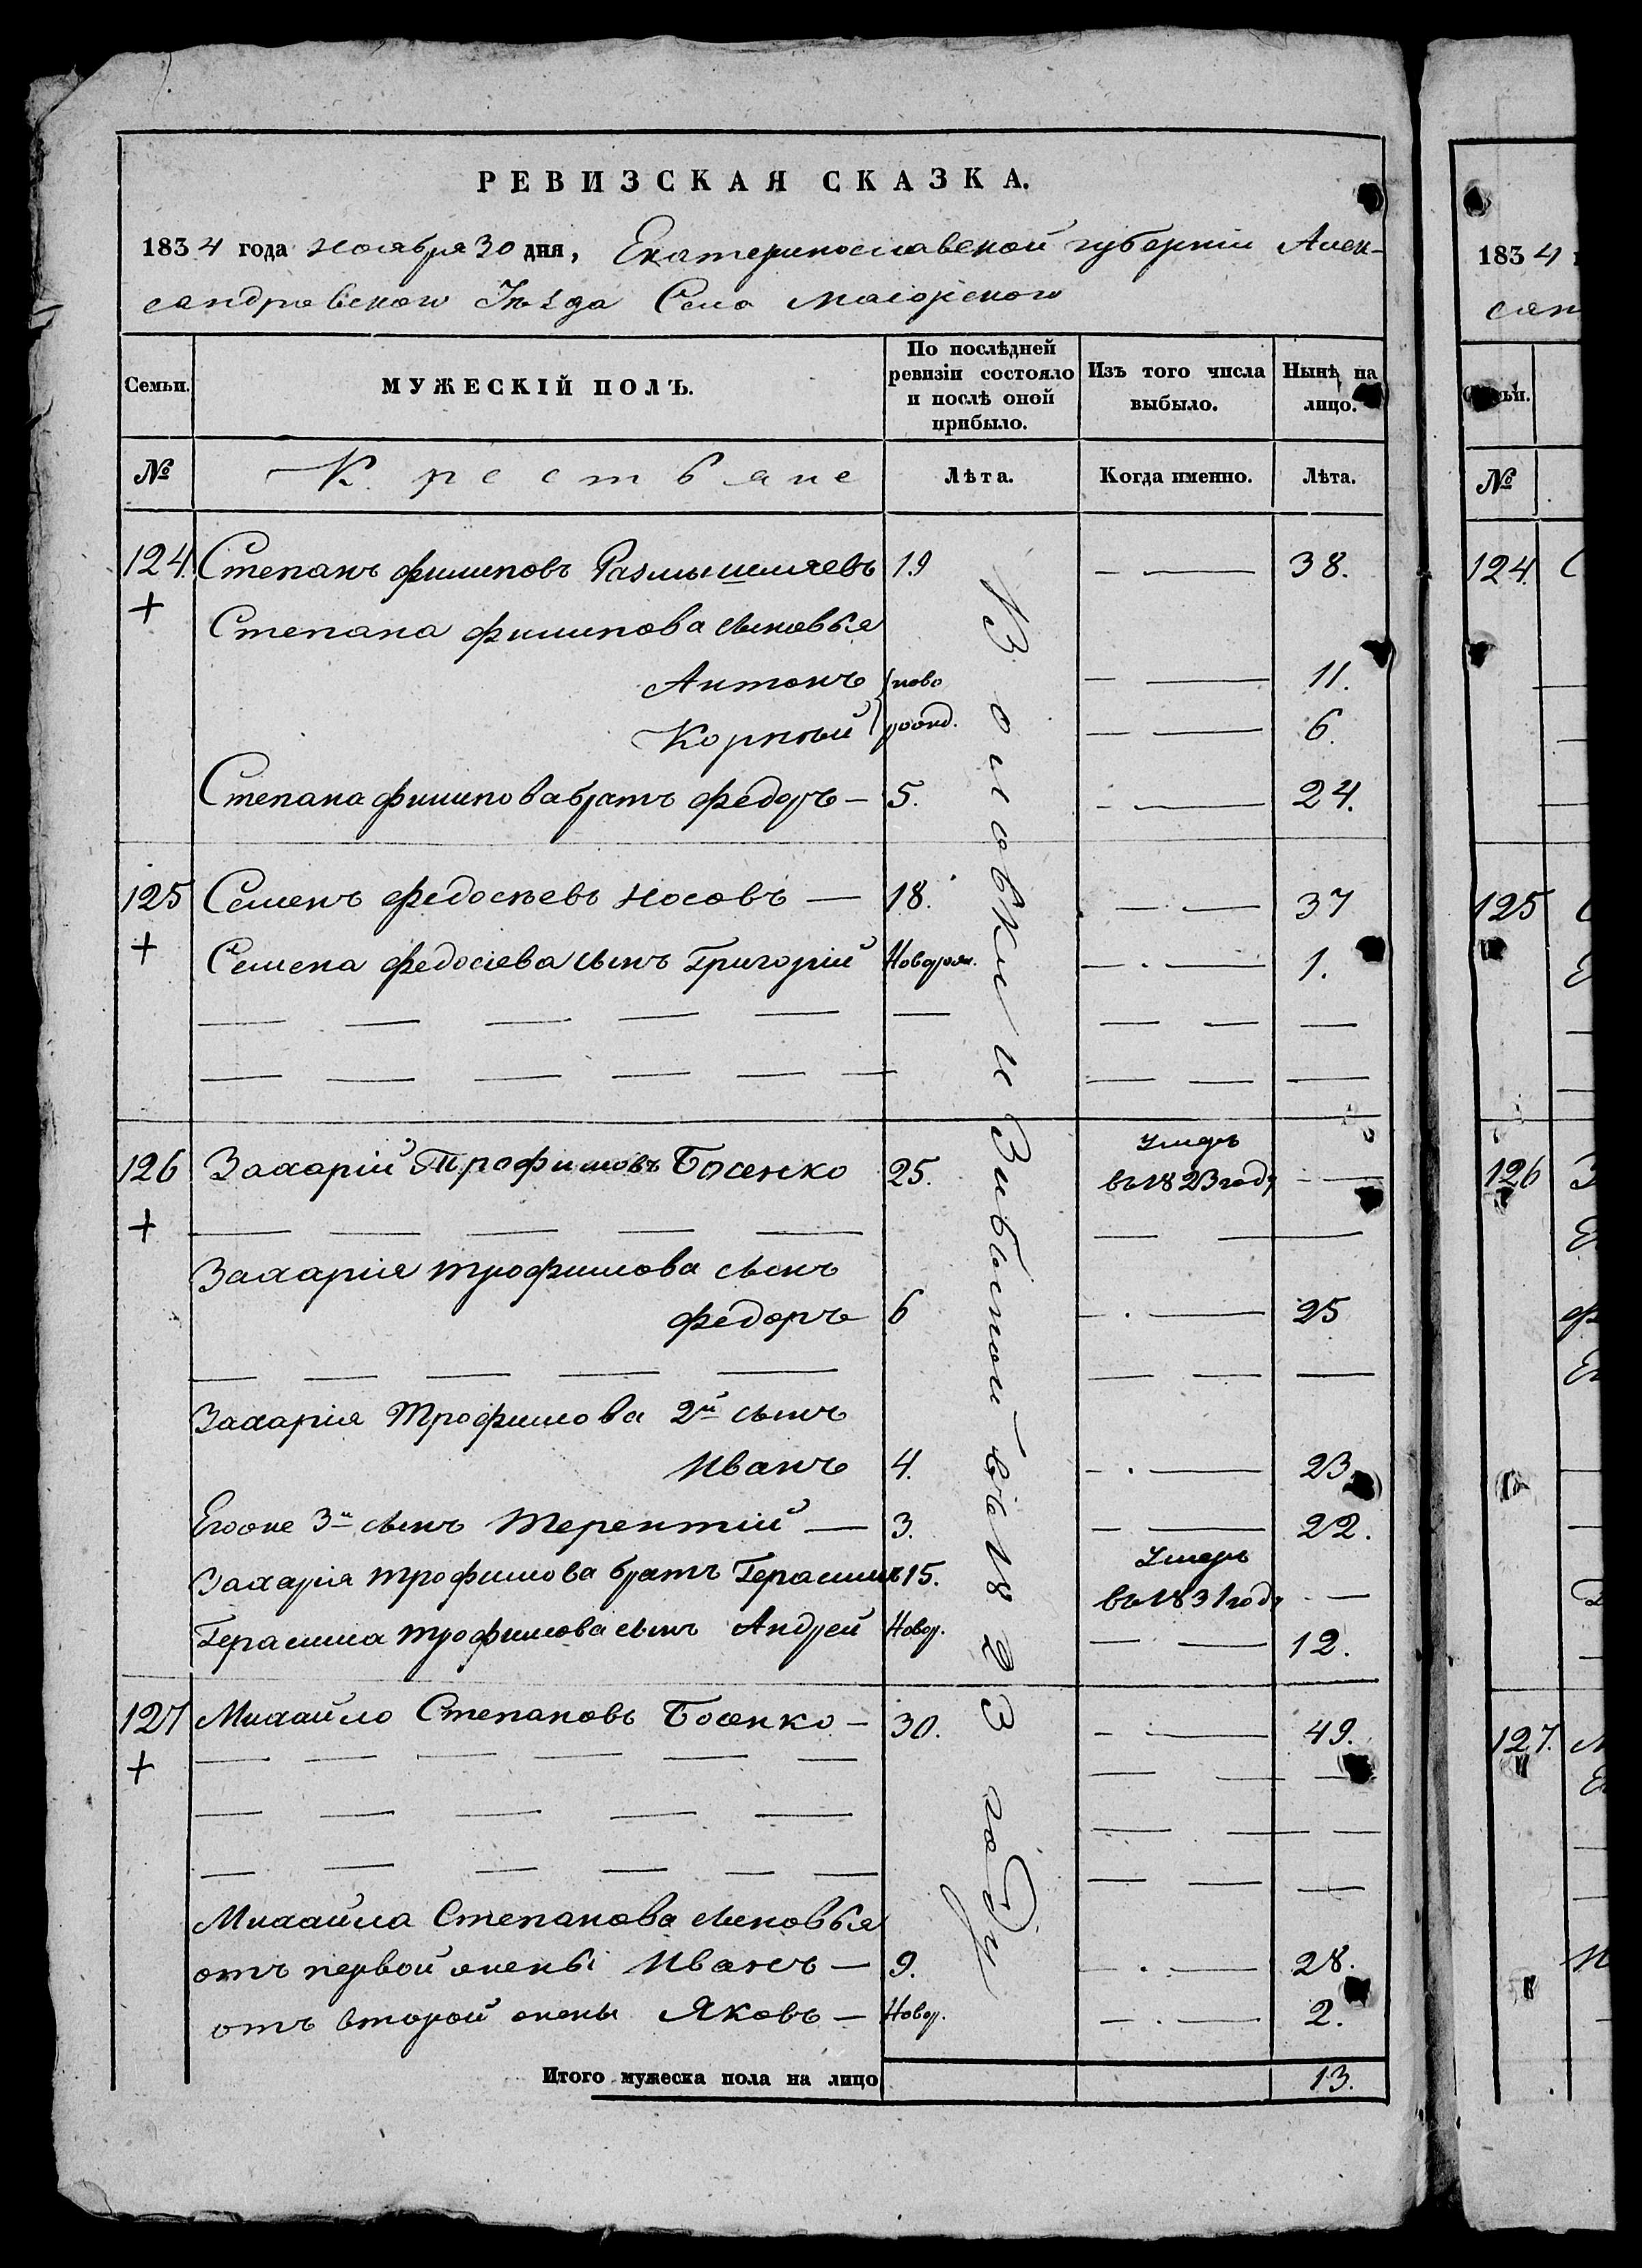 РЕВИЗСКАЯ СКАЗКА.
1834 года ноября 30 дня, Екатеринославской губерніи Алек-
сандровскаго Уѣзда Села Маіорскаго
Семьи.
МУЖЕСКІЙ ПОЛЪ.
По послѣдней ревизіи состояло и послѣ оной прибыло.
Изъ того числа выбыло.
Нынѣ на лицо.
№ Крестьяне Лѣта. Когда именно. Лѣта.
124. Степанъ филиповъ Размышляевъ 19 — — 38.
+
Степана филипова сыновья
Антонъ ново — — 11.
Корній рожд. — — 6.
Степана филипова братъ федоръ — 5. — — 24.
125 Семенъ федосѣевъ Носовъ — 18. — — 37
+ Семена федосіева сынъ Григорій Новорож. — — 1.
126 Захарій Трофимовъ Босенко 25. Умеръ въ 1823 году — —
+
Захарія трофимова сынъ
федоръ 6 — — 25
Захарія Трофимова 2й сынъ
Иванъ 4. — — 23.
Егоже 3й сынъ Терентій — 3. — — 22.
Захарія трофимова братъ Герасимъ 15. Умеръ въ 1831 году — —
Герасима трофимова сынъ Андрей Новор. — — 12.
127 Михайло Степановъ Босенко — 30. — — 49.
+
Михайла Степанова сыновья
отъ первой жены Иванъ — 9. — — 28.
отъ второй жены Яковъ — Новор. — — 2.
Итого мужеска пола на лицо 13.
и въ 1823 году
1834
сан
№
124 С
125 С
126 З
127. М